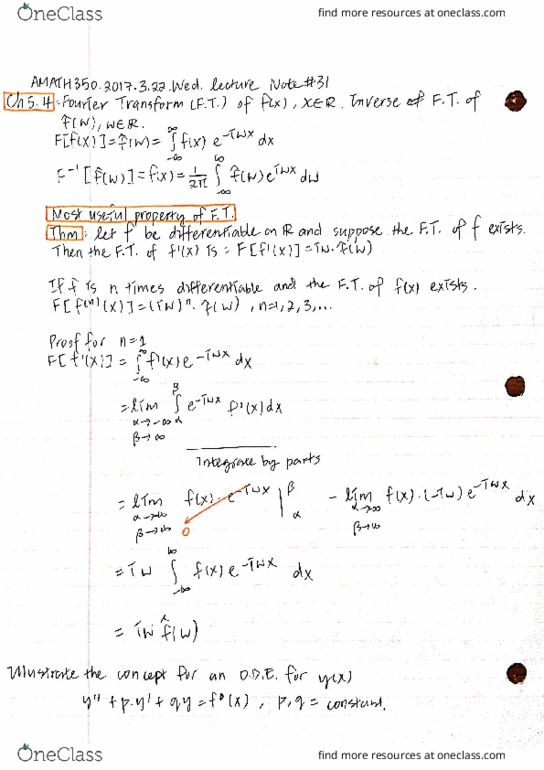 OneClass find more resources at oneclass.com
AMATH350.2017.3.22.Wed. lecture Note #31
Ch 5.4 Fourier Transform (F.T.) of f(x), x∈R. Inverse of F.T. of
f̂(w), w∈R.
F[f(x)] = f̂(w) = ∫_{-∞}^{∞} f(x) e^{-iwx} dx
F^{-1}[f̂(w)] = f(x) = 1/2π ∫_{-∞}^{∞} f̂(w) e^{iwx} dw
Most useful property of F.T.
Thm: let f be differentiable on R and suppose the F.T. of f exists.
Then the F.T. of f'(x) is = F[f'(x)] = iw·f̂(w)
If f is n times differentiable and the F.T. of f(x) exists.
F[f^{(n)}(x)] = (iw)^n · f̂(w), n=1,2,3,...
Proof for n=1
F[f'(x)] = ∫_{-∞}^{∞} f'(x) e^{-iwx} dx
= lim_{α→-∞ β→∞} ∫_α^β e^{-iwx} f'(x) dx
Integrate by parts
= lim_{α→∞ β→∞} f(x)·e^{-iwx} |_α^β - lim_{α→∞ β→∞} f(x)·(-iw) e^{-iwx} dx
0
= iw ∫_{-∞}^{∞} f(x) e^{-iwx} dx
= iw f̂(w)
Illustrate the concept for an O.D.E. for y(x)
y'' + p·y' + qy = f(x), p,q = constant.
OneClass find more resources at oneclass.com